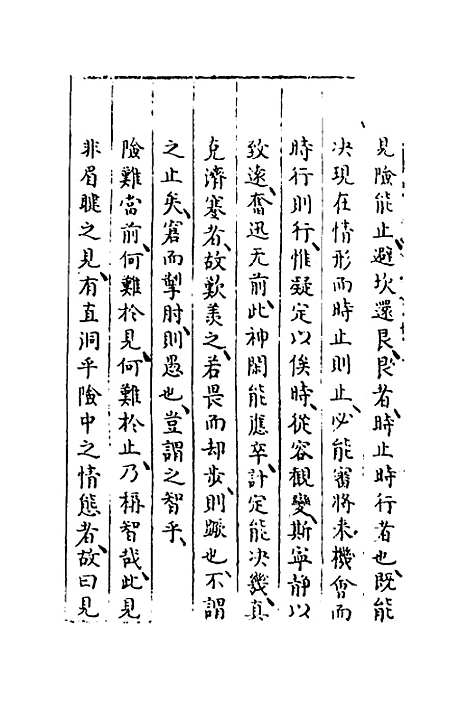 見險能止避坎還艮艮者時止時行者也既能
决現在情形而時止則止必能審將来機會而
時行則行惟凝定以俟時從容觀變斯寧静以
致遠奮迅无前此神閑能應卒計定能决幾真
克濟蹇者故歎美之若畏而却步則蹶也不謂
之止矣窘而掣肘則愚也豈謂之智乎
險難當前何難於見何難於止乃稱智哉此見
非眉睫之見有直洞乎險中之情態者故曰見